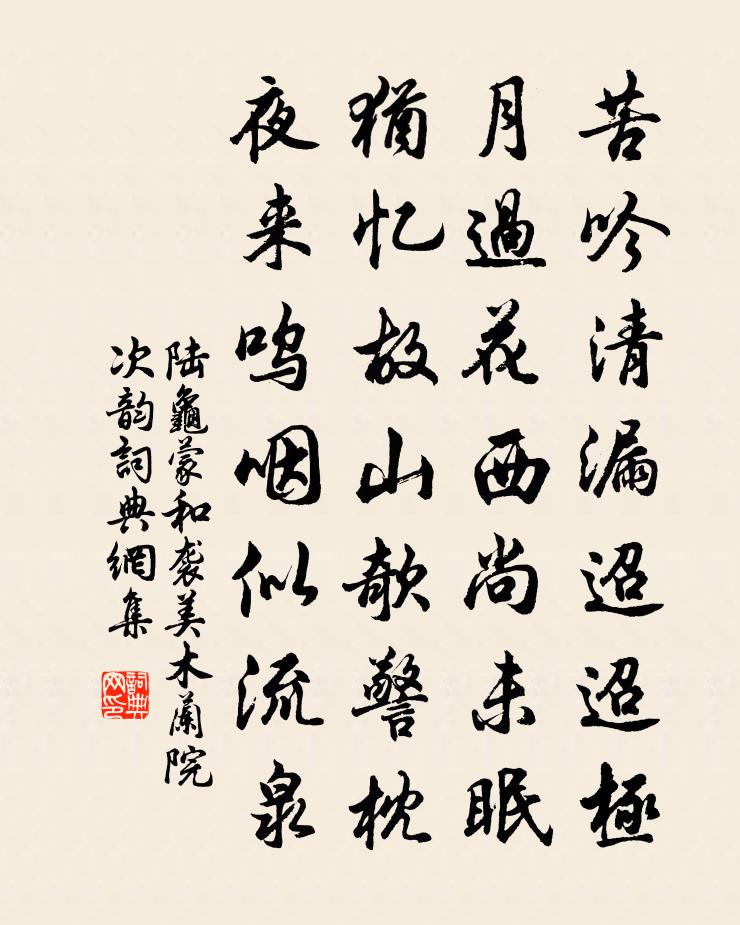 苦吟清漏迢迢極
月過花西尚未眠
猶忆故山欹警枕
夜来呜咽似流泉
陆龜蒙和袭美木蘭院
次韵詞典網集
詞典网印